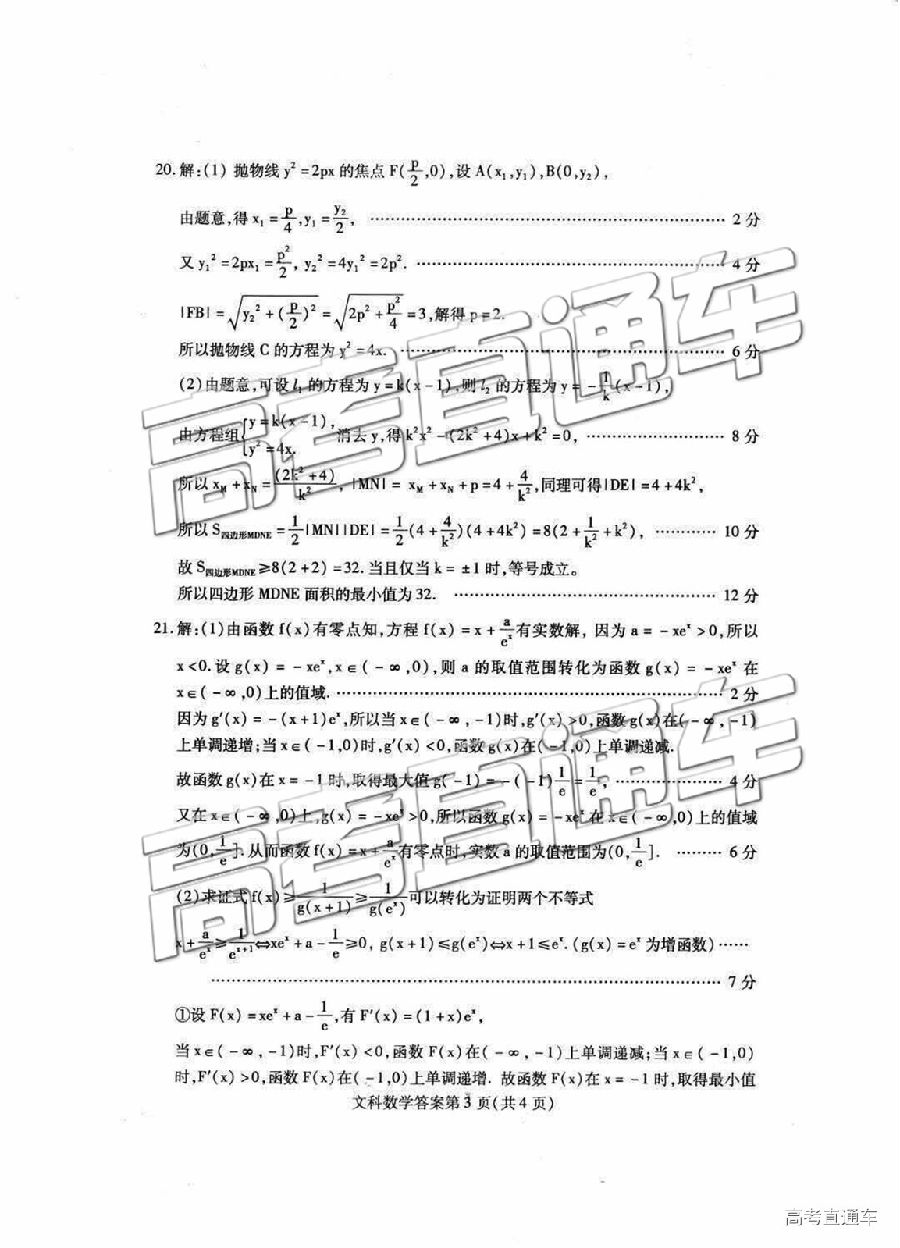 20.解:(1) 抛物线 y²=2px 的焦点 F(p/2,0),设 A(x₁,y₁),B(0,y₂),
由题意,得 x₁=p/4,y₁=y₂/2, …… 2 分
又 y₁²=2px₁=p²/2, y₂²=4y₁²=2p². …… 4 分
|FB|=√(y₂²+(p/2)²)=√(2p²+p²/4)=3,解得 p=2.
所以抛物线 C 的方程为 y²=4x. …… 6 分
(2)由题意,可设 l₁ 的方程为 y=k(x-1),则 l₂ 的方程为 y=-1/k(x-1),
由方程组{y=k(x-1), y²=4x. 消去 y,得 k²x²-(2k²+4)x+k²=0, …… 8 分
所以 x_M+x_N=(2k²+4)/k², |MN|= x_M+x_N+p=4+4/k²,同理可得|DE|=4+4k²,
所以 S四边形MDNE=1/2|MN||DE|=1/2(4+4/k²)(4+4k²)=8(2+1/k²+k²), …… 10 分
故 S四边形MDNE≥8(2+2)=32. 当且仅当 k=±1 时,等号成立。
所以四边形 MDNE 面积的最小值为 32. …… 12 分
21.解:(1)由函数 f(x)有零点知,方程 f(x)=x+a/eˣ有实数解, 因为 a=-xeˣ>0,所以
x<0. 设 g(x)=-xeˣ,x∈(-∞,0),则 a 的取值范围转化为函数 g(x)=-xeˣ 在
x∈(-∞,0)上的值域. …… 2 分
因为 g′(x)=-(x+1)eˣ,所以当 x∈(-∞,-1)时,g′(x)>0,函数 g(x)在(-∞,-1)
上单调递增;当 x∈(-1,0)时,g′(x)<0,函数 g(x)在(-1,0)上单调递减.
故函数 g(x)在 x=-1 时,取得最大值 g(-1)=-(-1)1/e=1/e, …… 4 分
又在 x∈(-∞,0)上,g(x)=-xeˣ>0,所以函数 g(x)=-xeˣ 在 x∈(-∞,0)上的值域
为(0,1/e]. 从而函数 f(x)=x+a/eˣ有零点时,实数 a 的取值范围为(0,1/e]. …… 6 分
(2)求证式 f(x)≥1/g(x+1)≥1/g(eˣ)可以转化为证明两个不等式
x+a/eˣ≥1/eˣ⁺¹⇔xeˣ+a-1/e≥0, g(x+1)≤g(eˣ)⇔x+1≤eˣ.(g(x)=eˣ 为增函数)……
…… 7 分
①设 F(x)=xeˣ+a-1/e,有 F′(x)=(1+x)eˣ,
当 x∈(-∞,-1)时,F′(x)<0,函数 F(x)在(-∞,-1)上单调递减;当 x∈(-1,0)
时,F′(x)>0,函数 F(x)在(-1,0)上单调递增. 故函数 F(x)在 x=-1 时,取得最小值
文科数学答案第 3 页(共 4 页)
高考直通车
高考直通车
高考直通车